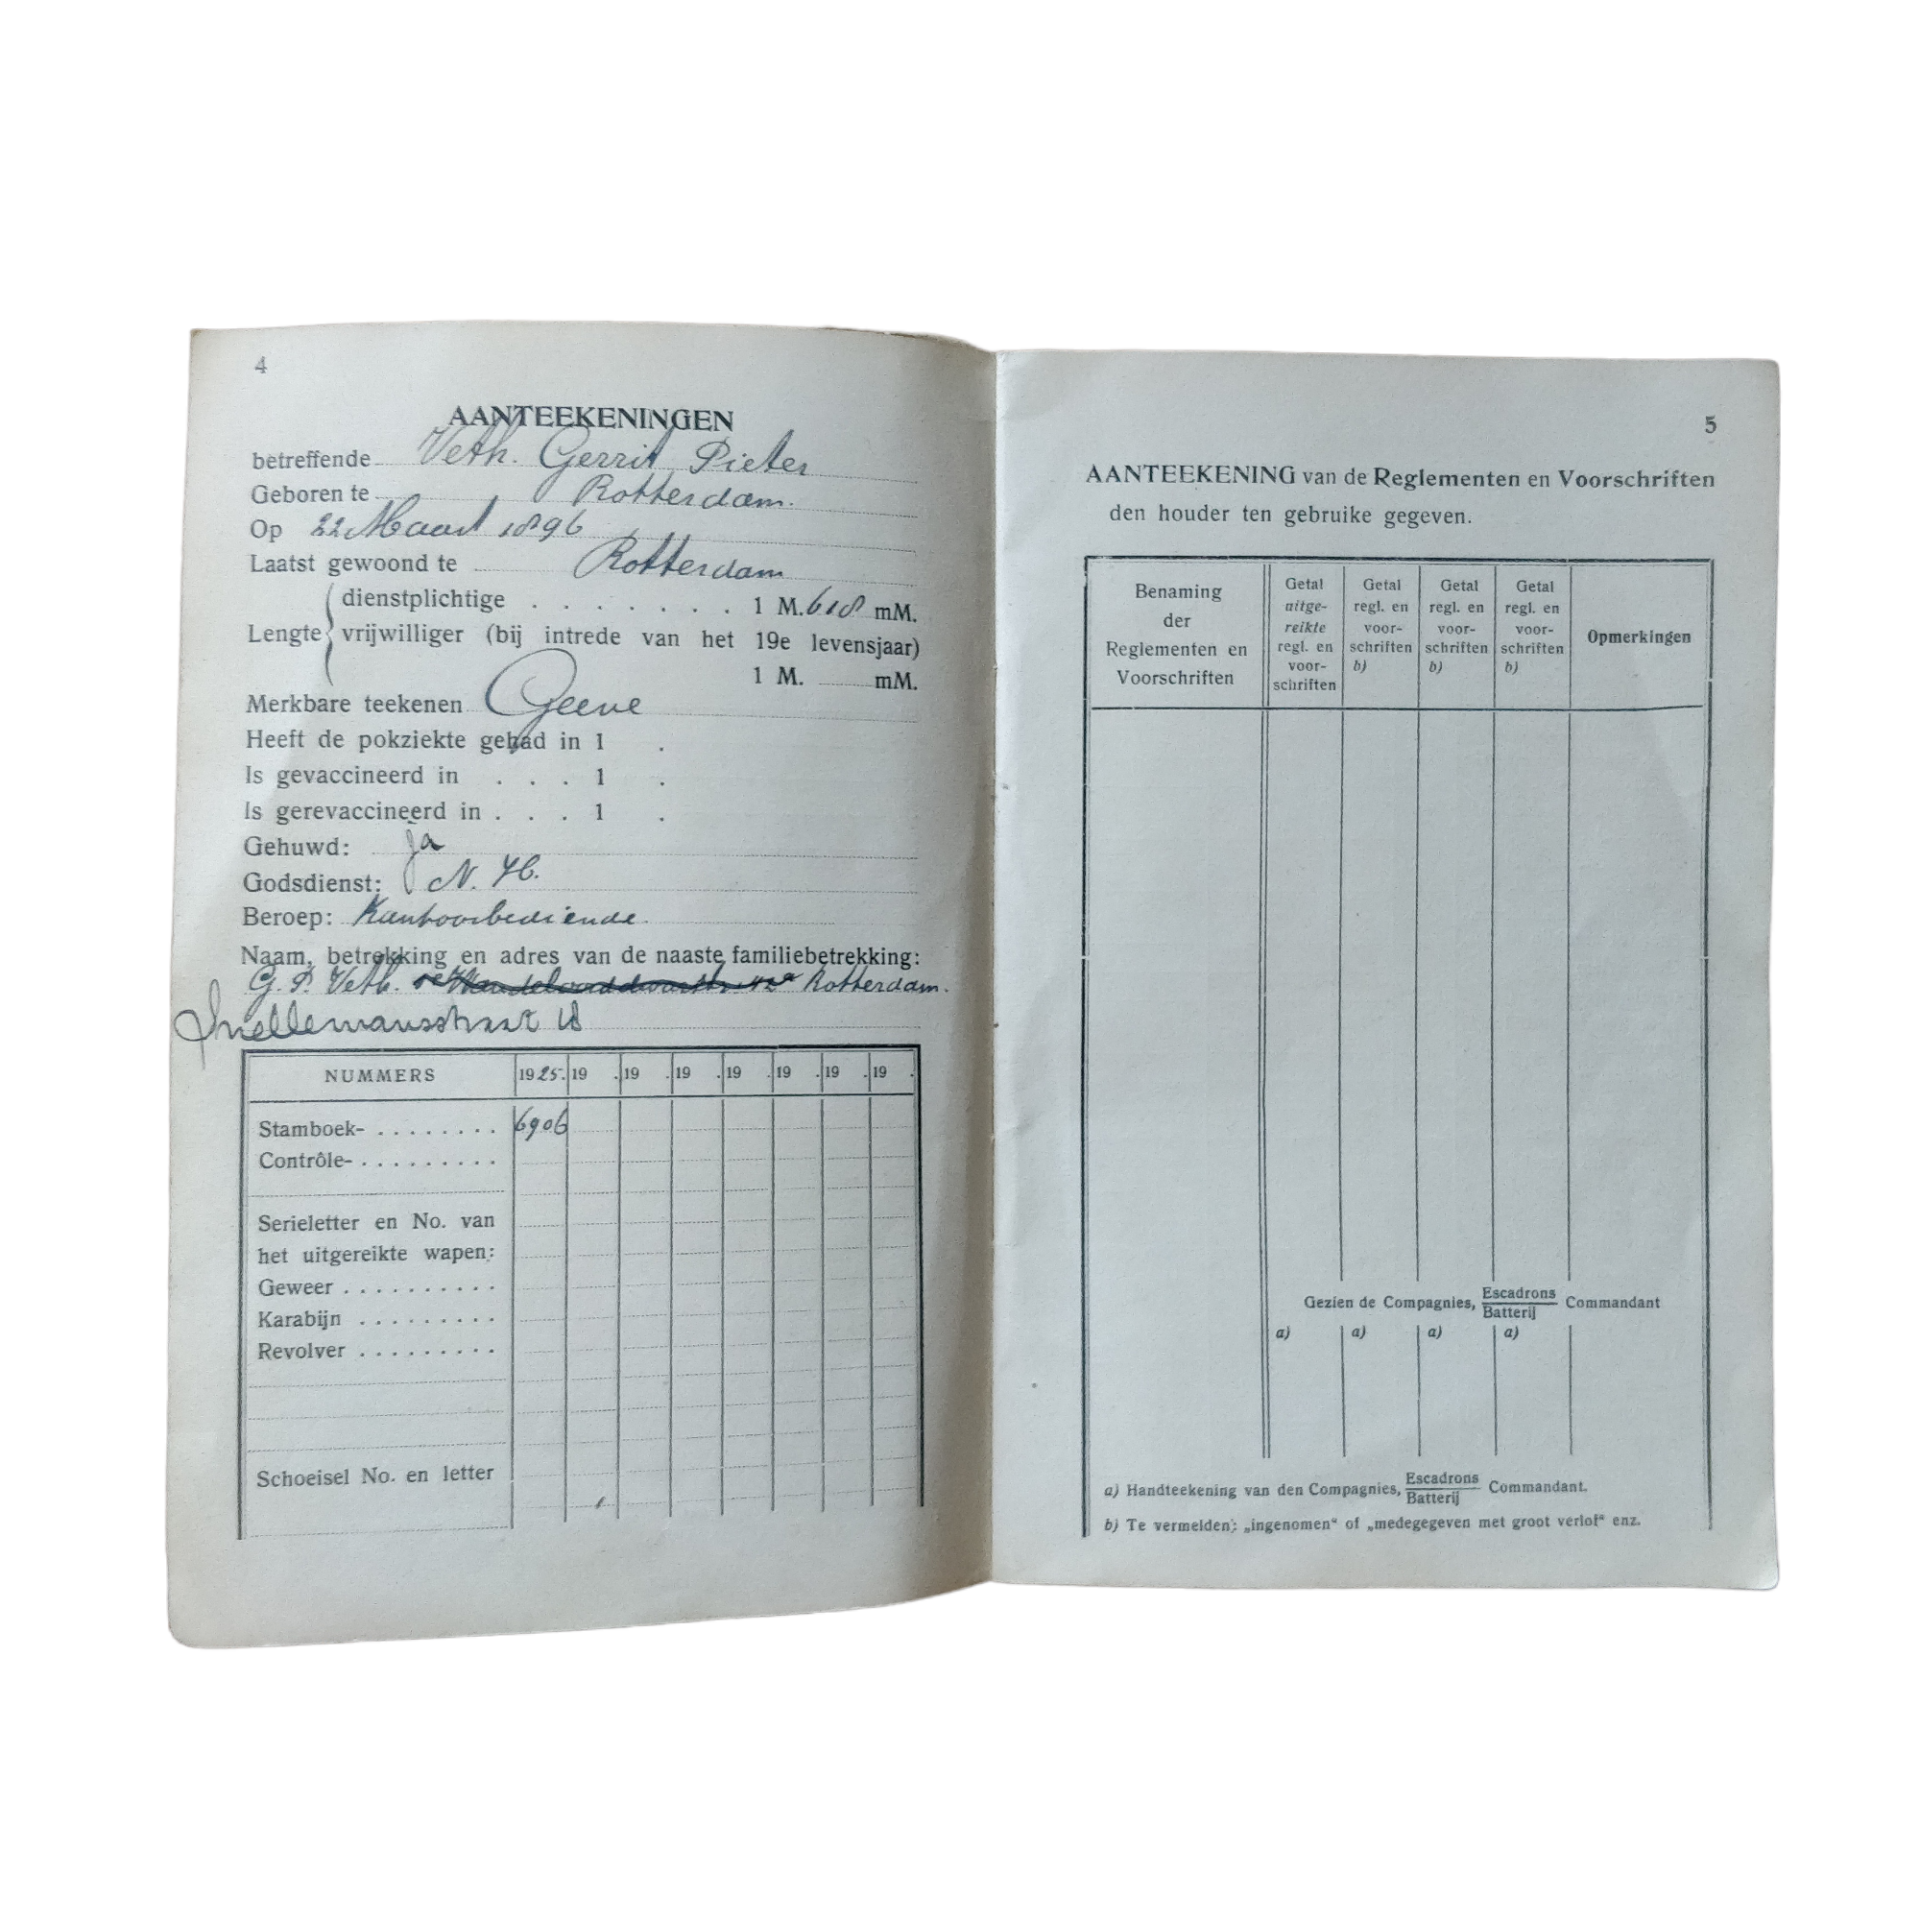 4
AANTEEKENINGEN
betreffende Veth. Gerrit Pieter
Geboren te Rotterdam.
Op 22 Maart 1896
Laatst gewoond te Rotterdam
dienstplichtige . . . . . . . 1 M. 618 mM.
Lengte vrijwilliger (bij intrede van het 19e levensjaar)
1 M. mM.
Merkbare teekenen Geene
Heeft de pokziekte gehad in 1 .
Is gevaccineerd in . . . 1 .
Is gerevaccineerd in . . . 1 .
Gehuwd: ja
Godsdienst: N. H.
Beroep: Kantoorbediende.
Naam, betrekking en adres van de naaste familiebetrekking:
G. P. Veth. Rotterdam.
Snellemansstraat 18
NUMMERS 1925. 19 . 19 . 19 . 19 . 19 . 19 . 19 .
Stamboek- . . . . . . . . 6906
Contrôle- . . . . . . . . .
Serieletter en No. van
het uitgereikte wapen:
Geweer . . . . . . . . . .
Karabijn . . . . . . . . .
Revolver . . . . . . . . .
Schoeisel No. en letter
5
AANTEEKENING van de Reglementen en Voorschriften
den houder ten gebruike gegeven.
Benaming
der
Reglementen en
Voorschriften
Getal
uitge-
reikte
regl. en
voor-
schriften
Getal
regl. en
voor-
schriften
b)
Getal
regl. en
voor-
schriften
b)
Getal
regl. en
voor-
schriften
b)
Opmerkingen
Gezien de Compagnies, Escadrons Commandant
Batterij
a) a) a) a)
a) Handteekening van den Compagnies, Escadrons Commandant.
Batterij
b) Te vermelden: „ingenomen“ of „medegegeven met groot verlof“ enz.